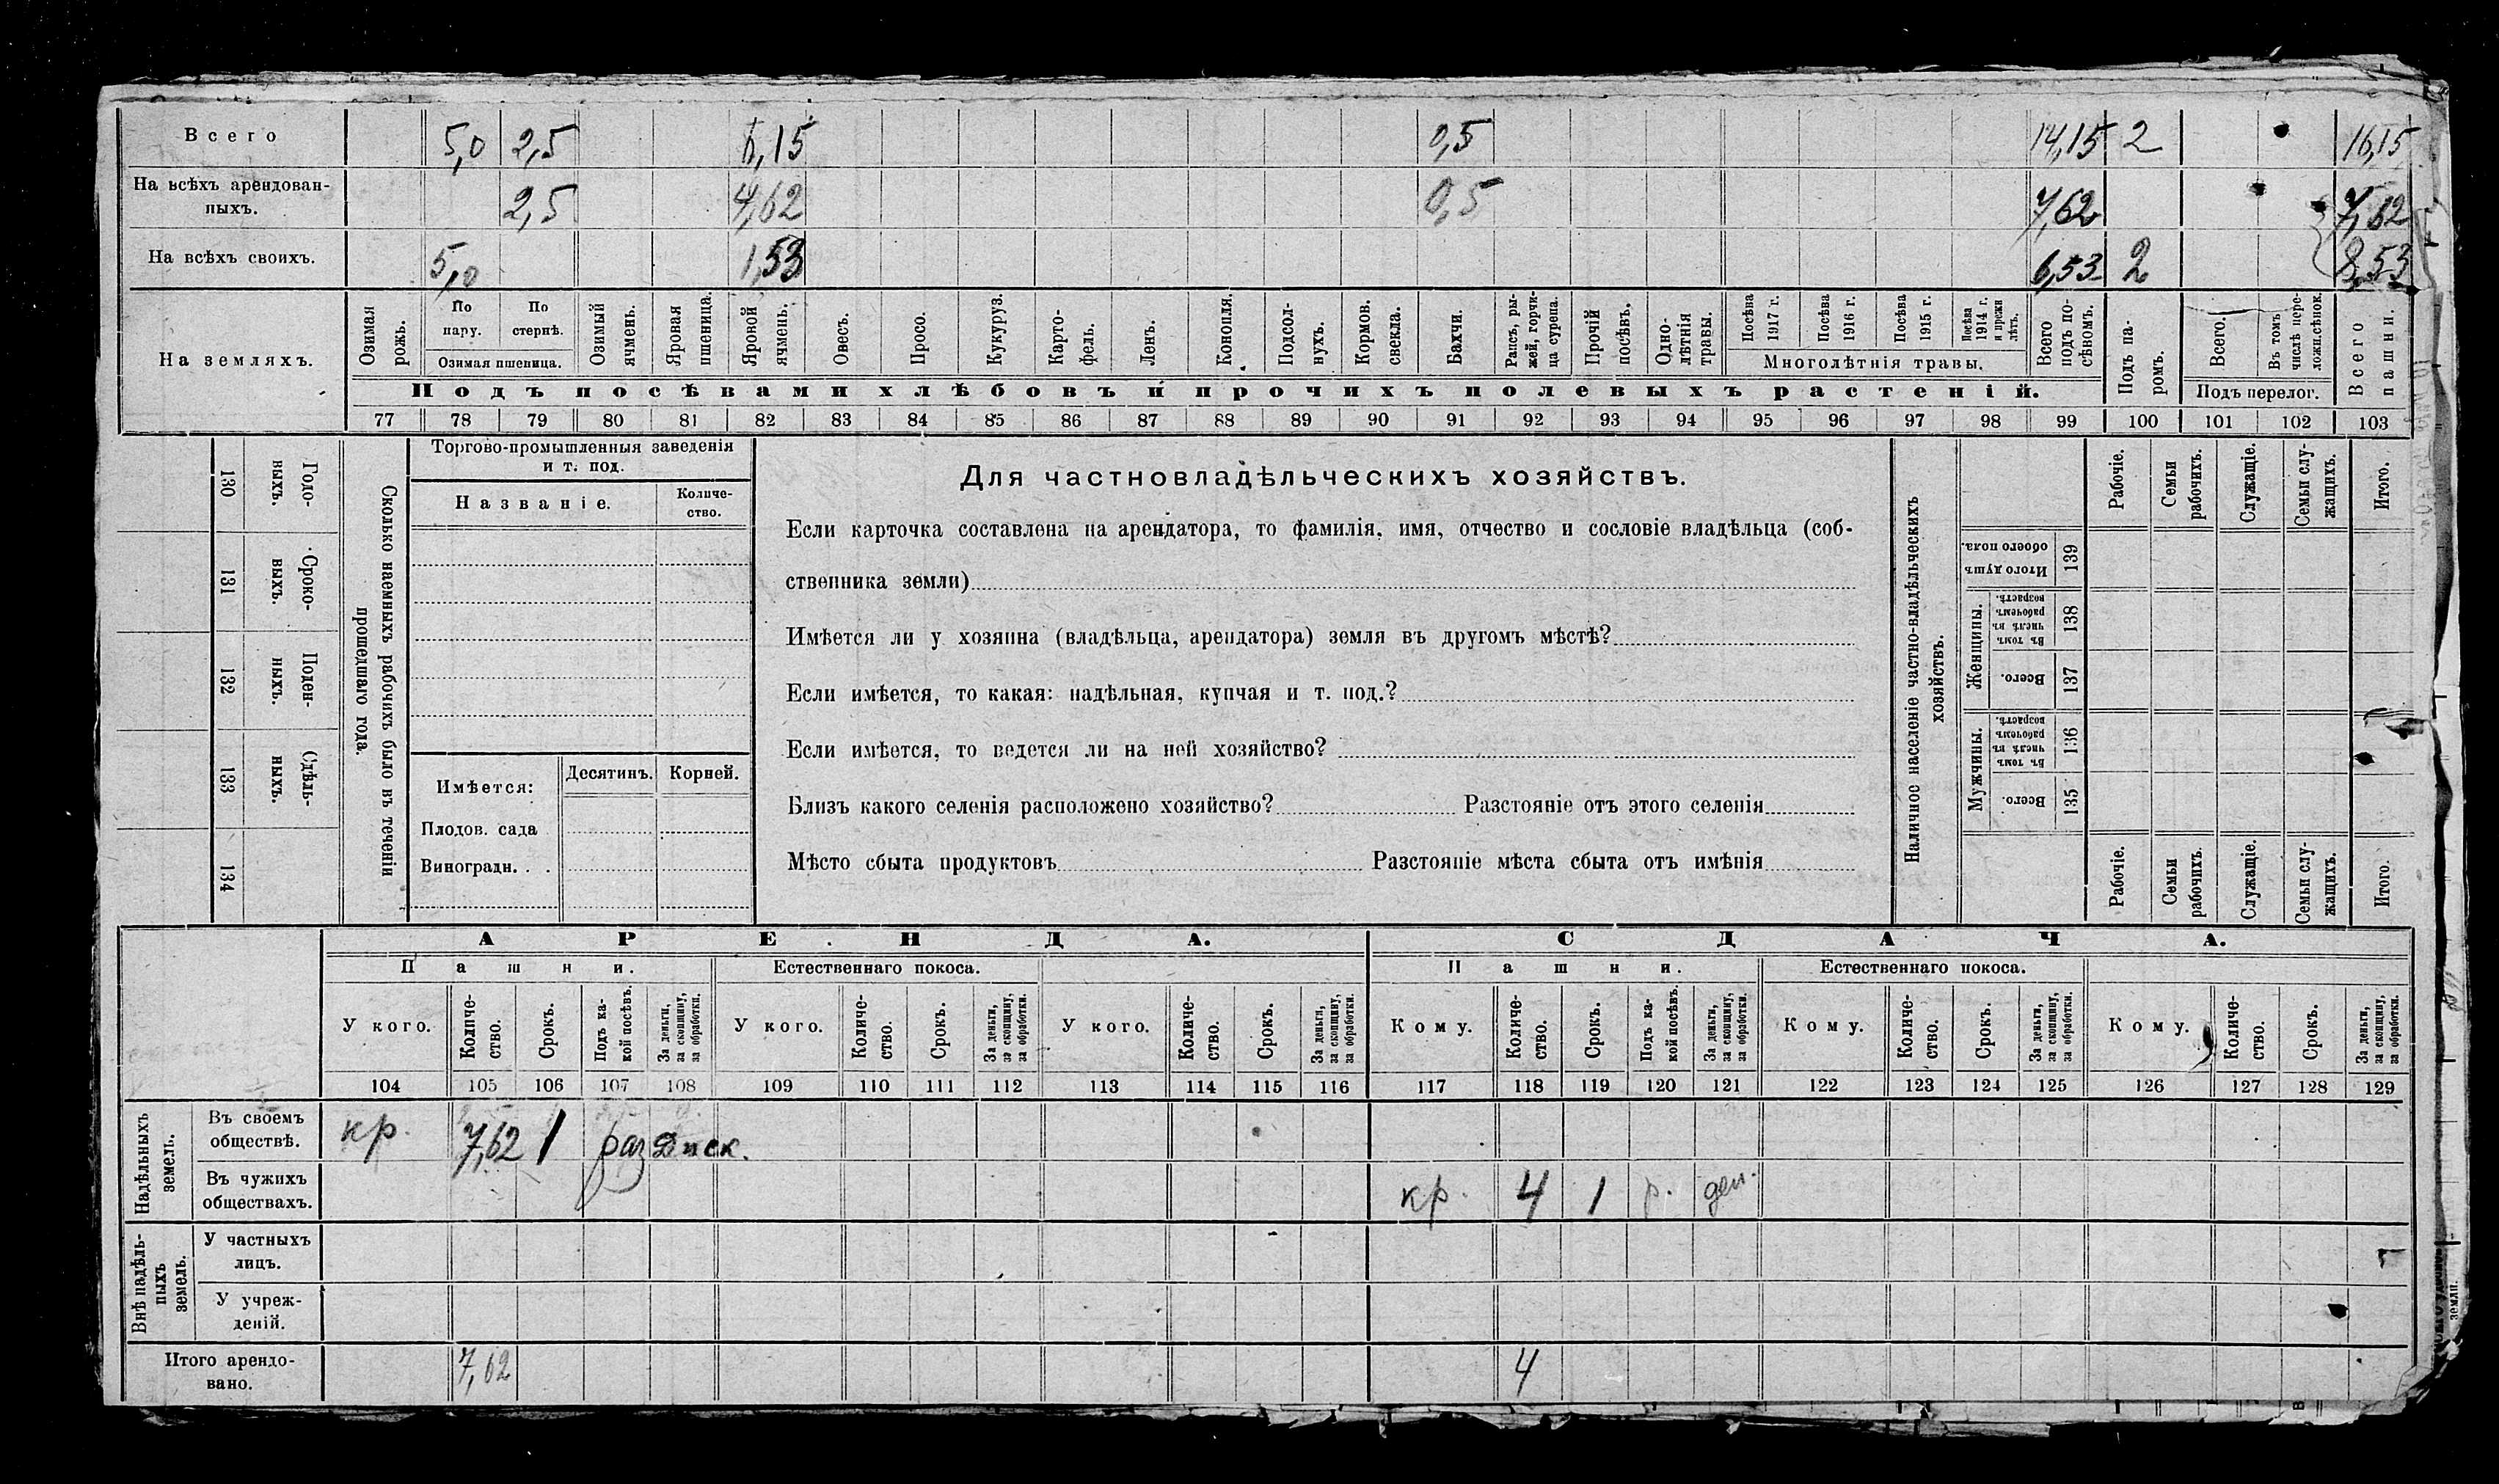 Всего 5,0 2,5 6,15 0,5 14,15 2 16,15
На всѣхъ арендован-
ныхъ. 2,5 4,62 0,5 7,62 7,62
На всѣхъ своихъ. 5,0 1,53 6,53 2 8,53
На земляхъ.
Озимая рожь.
По пару.
По стернѣ.
Озимая пшеница.
Озимый ячмень.
Яровая пшеница.
Яровой ячмень.
Овесъ.
Просо.
Кукуруз.
Карто-
фель.
Ленъ.
Конопля.
Подсол-
нухъ.
Кормов. свекла.
Бахчи.
Рапсъ, ры-
жей, горчи-
ца сурепа.
Прочій посѣвъ.
Одно-
лѣтнія травы.
Посѣва 1917 г.
Посѣва 1916 г.
Посѣва 1915 г.
Посѣва 1914 г. и прежн лѣтъ.
Многолѣтнія травы.
Всего подъ по-
сѣвомъ.
Подъ па-
ромъ.
Всего.
Въ томъ числѣ пере-
ложн.сѣнокос.
Подъ перелог.
Всего пашни.
Подъ посѣвами хлѣбовъ и прочихъ полевыхъ растеній.
77 78 79 80 81 82 83 84 85 86 87 88 89 90 91 92 93 94 95 96 97 98 99 100 101 102 103
130 Годо-
выхъ.
131 Сроко-
выхъ.
132 Поден-
ныхъ.
133 Сдѣль-
ныхъ.
134
Сколько наемныхъ рабочихъ было въ теченіи
прошедшаго года.
Торгово-промышленныя заведенія
и т. под.
Названіе. Количе-
ство.
Имѣется: Десятинъ. Корней.
Плодов. сада
Виноградн. . .
Для частновладѣльческихъ хозяйствъ.
Если карточка составлена на арендатора, то фамилія, имя, отчество и сословіе владѣльца (соб-
ственника земли)
Имѣется ли у хозяина (владѣльца, арендатора) земля въ другомъ мѣстѣ?
Если имѣется, то какая: надѣльная, купчая и т. под.?
Если имѣется, то ведется ли на ней хозяйство?
Близъ какого селенія расположено хозяйство? Разстояніе отъ этого селенія
Мѣсто сбыта продуктовъ Разстояніе мѣста сбыта отъ имѣнія
Наличное населеніе частно-владѣльческихъ
хозяйствъ.
Рабочіе.
Семьи рабочихъ.
Служащіе.
Семьи слу-
жащихъ.
Итого.
Итого душъ обоего пола. 139
Женщины.
Въ томъ числѣ въ рабочемъ возрастѣ. 138
Всего. 137
Мужчины.
Въ томъ числѣ въ рабочемъ возрастѣ. 136
Всего. 135
Рабочіе.
Семьи рабочихъ.
Служащіе.
Семьи слу-
жащихъ.
Итого.
АРЕНДА. СДАЧА.
Пашни. Естественнаго покоса. Пашни. Естественнаго покоса.
У кого.
Количе-
ство.
Срокъ.
Подъ ка-
кой посѣвъ.
За деньги, за скопщину, за обработки.
У кого.
Количе-
ство.
Срокъ.
За деньги, за скопщину, за обработки.
У кого.
Количе-
ство.
Срокъ.
За деньги, за скопщину, за обработки.
Кому.
Количе-
ство.
Срокъ.
Подъ ка-
кой посѣвъ.
За деньги, за скопщину, за обработки.
Кому.
Количе-
ство.
Срокъ.
За деньги, за скопщину, за обработки.
Кому.
Количе-
ство.
Срокъ.
За деньги, за скопщину, за обработки.
104 105 106 107 108 109 110 111 112 113 114 115 116 117 118 119 120 121 122 123 124 125 126 127 128 129
Надѣльныхъ
земель.
Въ своемъ
обществѣ. кр. 7,62 1 раз
Въ чужихъ
обществахъ. кр. 4 1 р. ден.
Внѣ надѣль-
ныхъ
земель.
У частныхъ
лицъ.
У учреж-
деній.
Итого арендо-
вано. 7,62 4
земли.